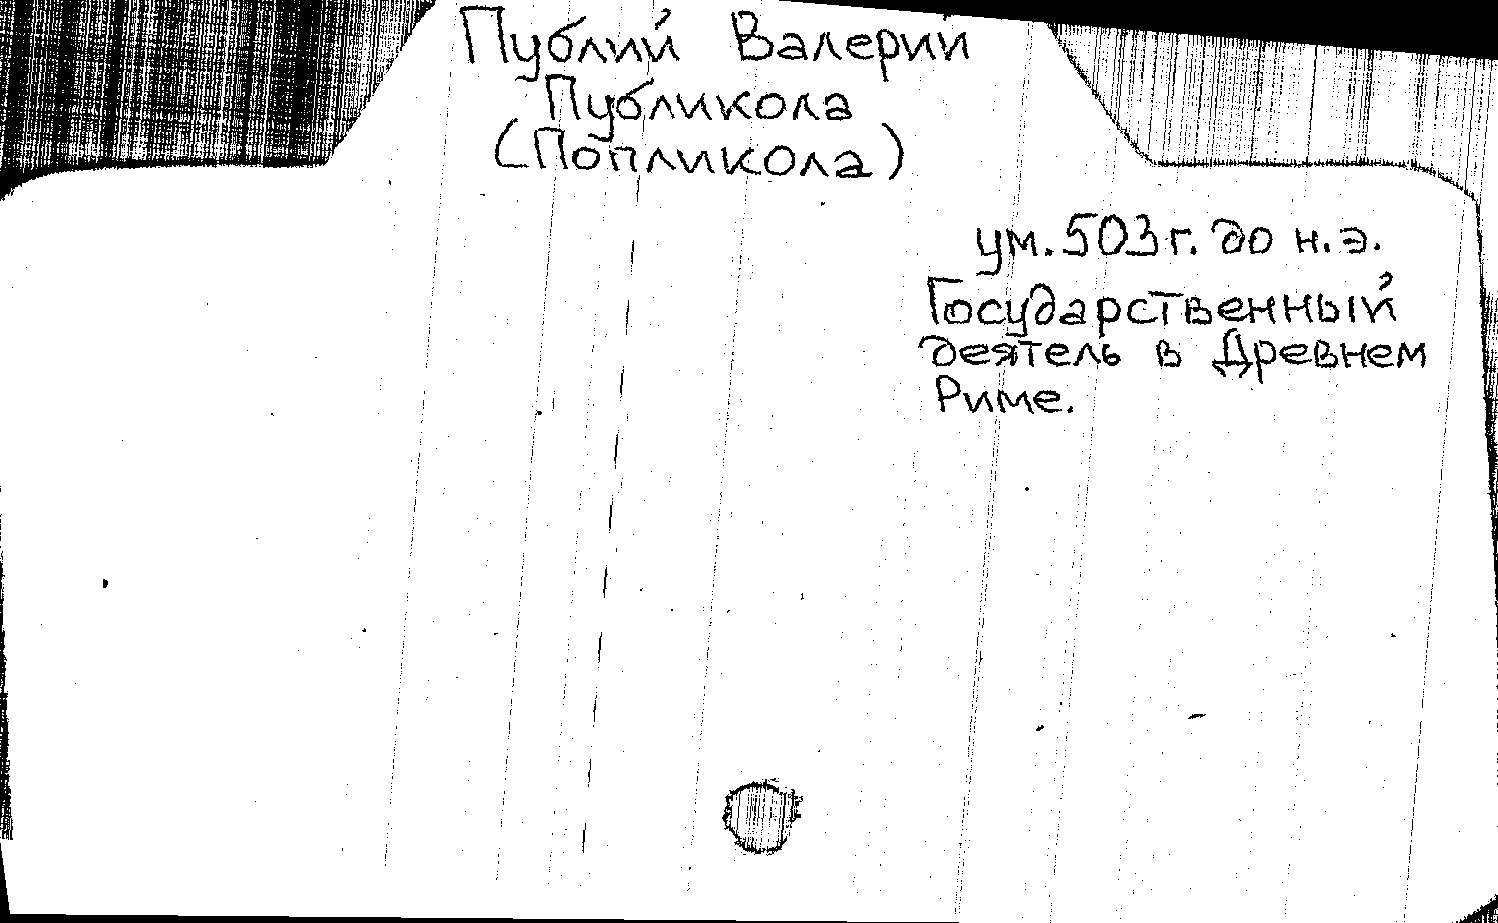 Публий Валерий
Публикола
(Попликола)
ум. 503 г. до н. э.
Государственный
деятель в Древнем
Риме.